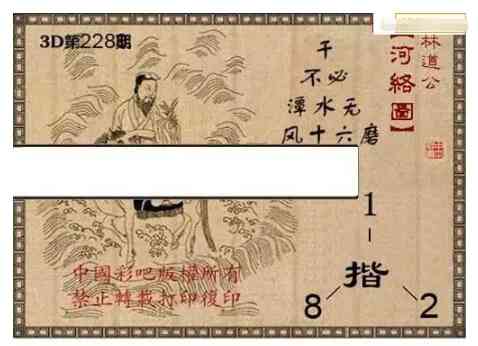 3D第228期
林道公
【河絡圖】
干
不必
潭水无
风十六磨
1
揩
8
2
中國彩吧版權所有
禁止轉載打印復印